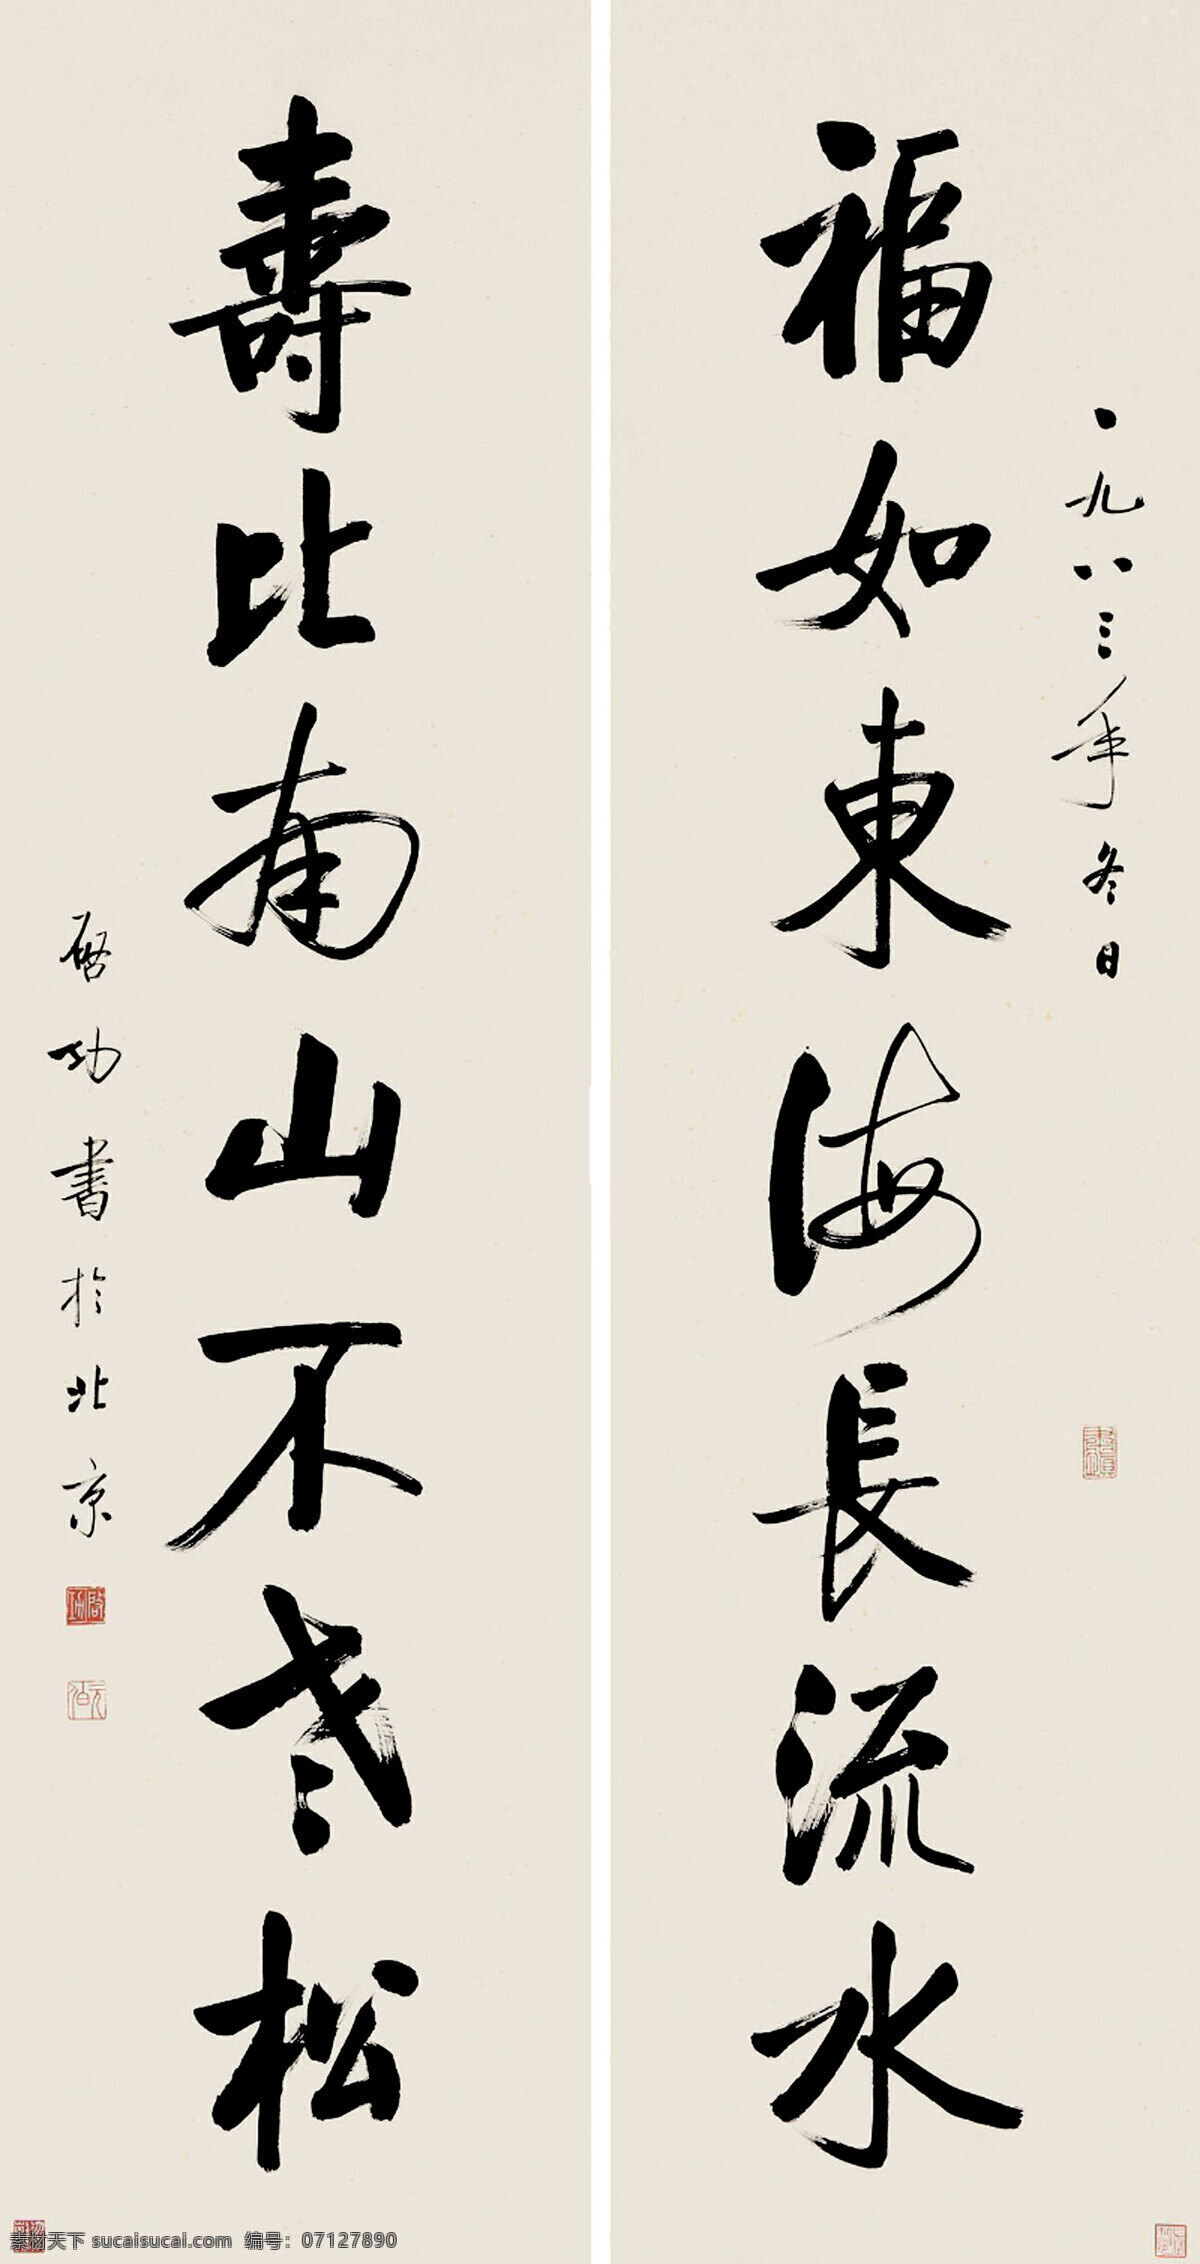 一九八三年冬日
福如東海長流水
壽比南山不老松
啓功書於北京
啓功
元白
素材天下 sucaisucai.com 编号：07127890